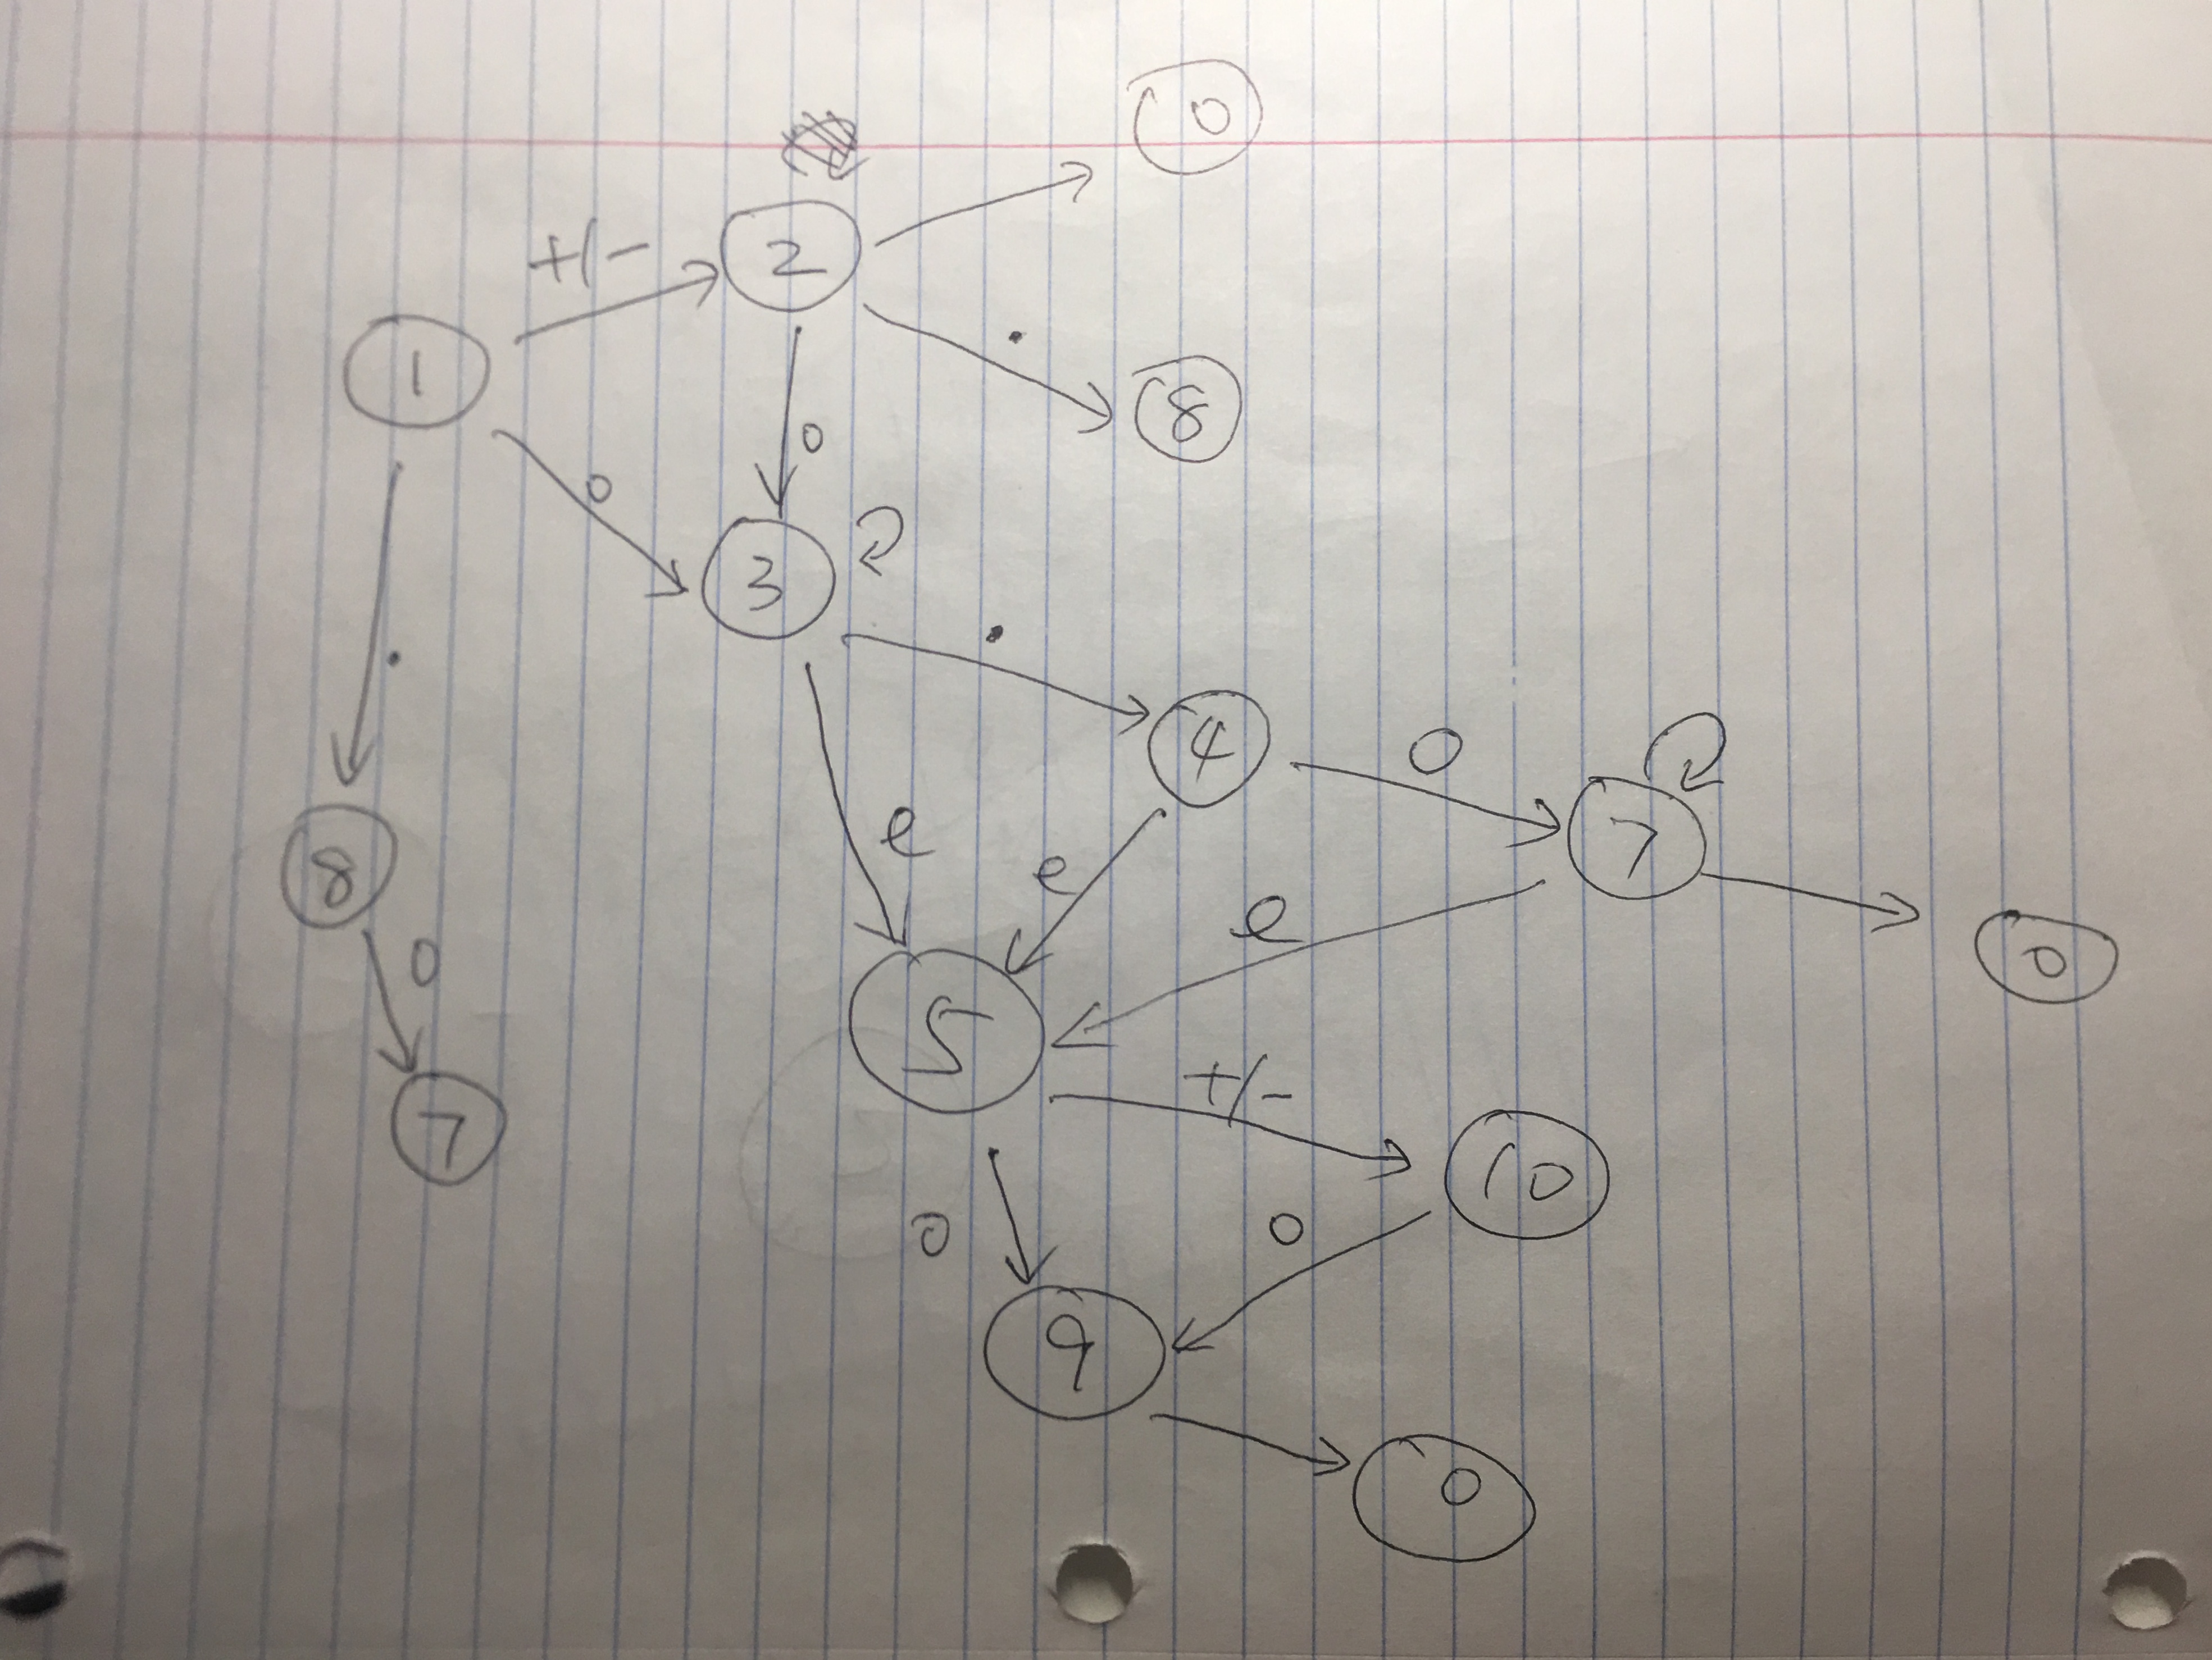 0
+/-
2
.
1
8
0
0
3
.
.
4
0
e
7
8
e
e
0
0
5
+/-
7
10
0
0
9
0